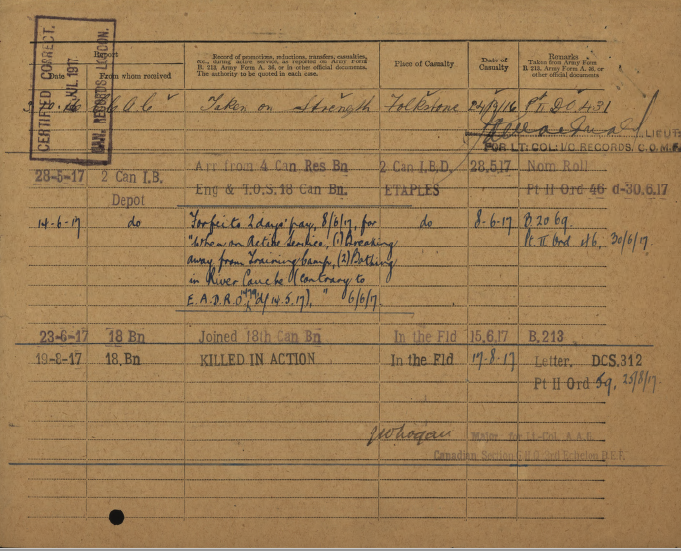 CERTIFIED CORRECT.
CAN. RECORDS, LONDON.
Report
Date
From whom received
Record of promotions, reductions, transfers, casualties,
etc., during active service, as reported on Army Form
B. 213, Army Form A. 36, or in other official documents.
The authority to be quoted in each case.
Place of Casualty
Date of
Casualty
Remarks
Taken from Army Form
B. 213, Army Form A. 36, or
other official documents
Taken on Strength Folkstone 24/9/16 Pt II DO 431
LIEUT
FOR LT: COL: I/C RECORDS, C.O.M.F.
28-5-17 2 Can I.B. Depot Arr from 4 Can Res Bn 2 Can I.B.D. 28.5.17 Nom Roll
Eng & T.O.S. 18 Can Bn. ETAPLES Pt II Ord 46 d-30.6.17
14-6-17 do Forfeits 2 days' pay, 8/6/17, for do 8-6-17 B 2069.
"When on Active Service, (1) Breaking Pt II Ord 46, 30/6/17.
away from Training Camp, (2) Bathing
in River Canche (contrary to
E.A.D.R.O. 1479 d/14.5.17), " 6/6/17.
23-6-17 18 Bn Joined 18th Can Bn In the Fld 15.6.17 B.213
19-8-17 18. Bn KILLED IN ACTION In the Fld 17-8-17 Letter. DCS.312
Pt II Ord 59, 25/8/17.
Major for Lt-Col. A.A.G.
Canadian Section G.H.Q. 3rd Echelon B.E.F.